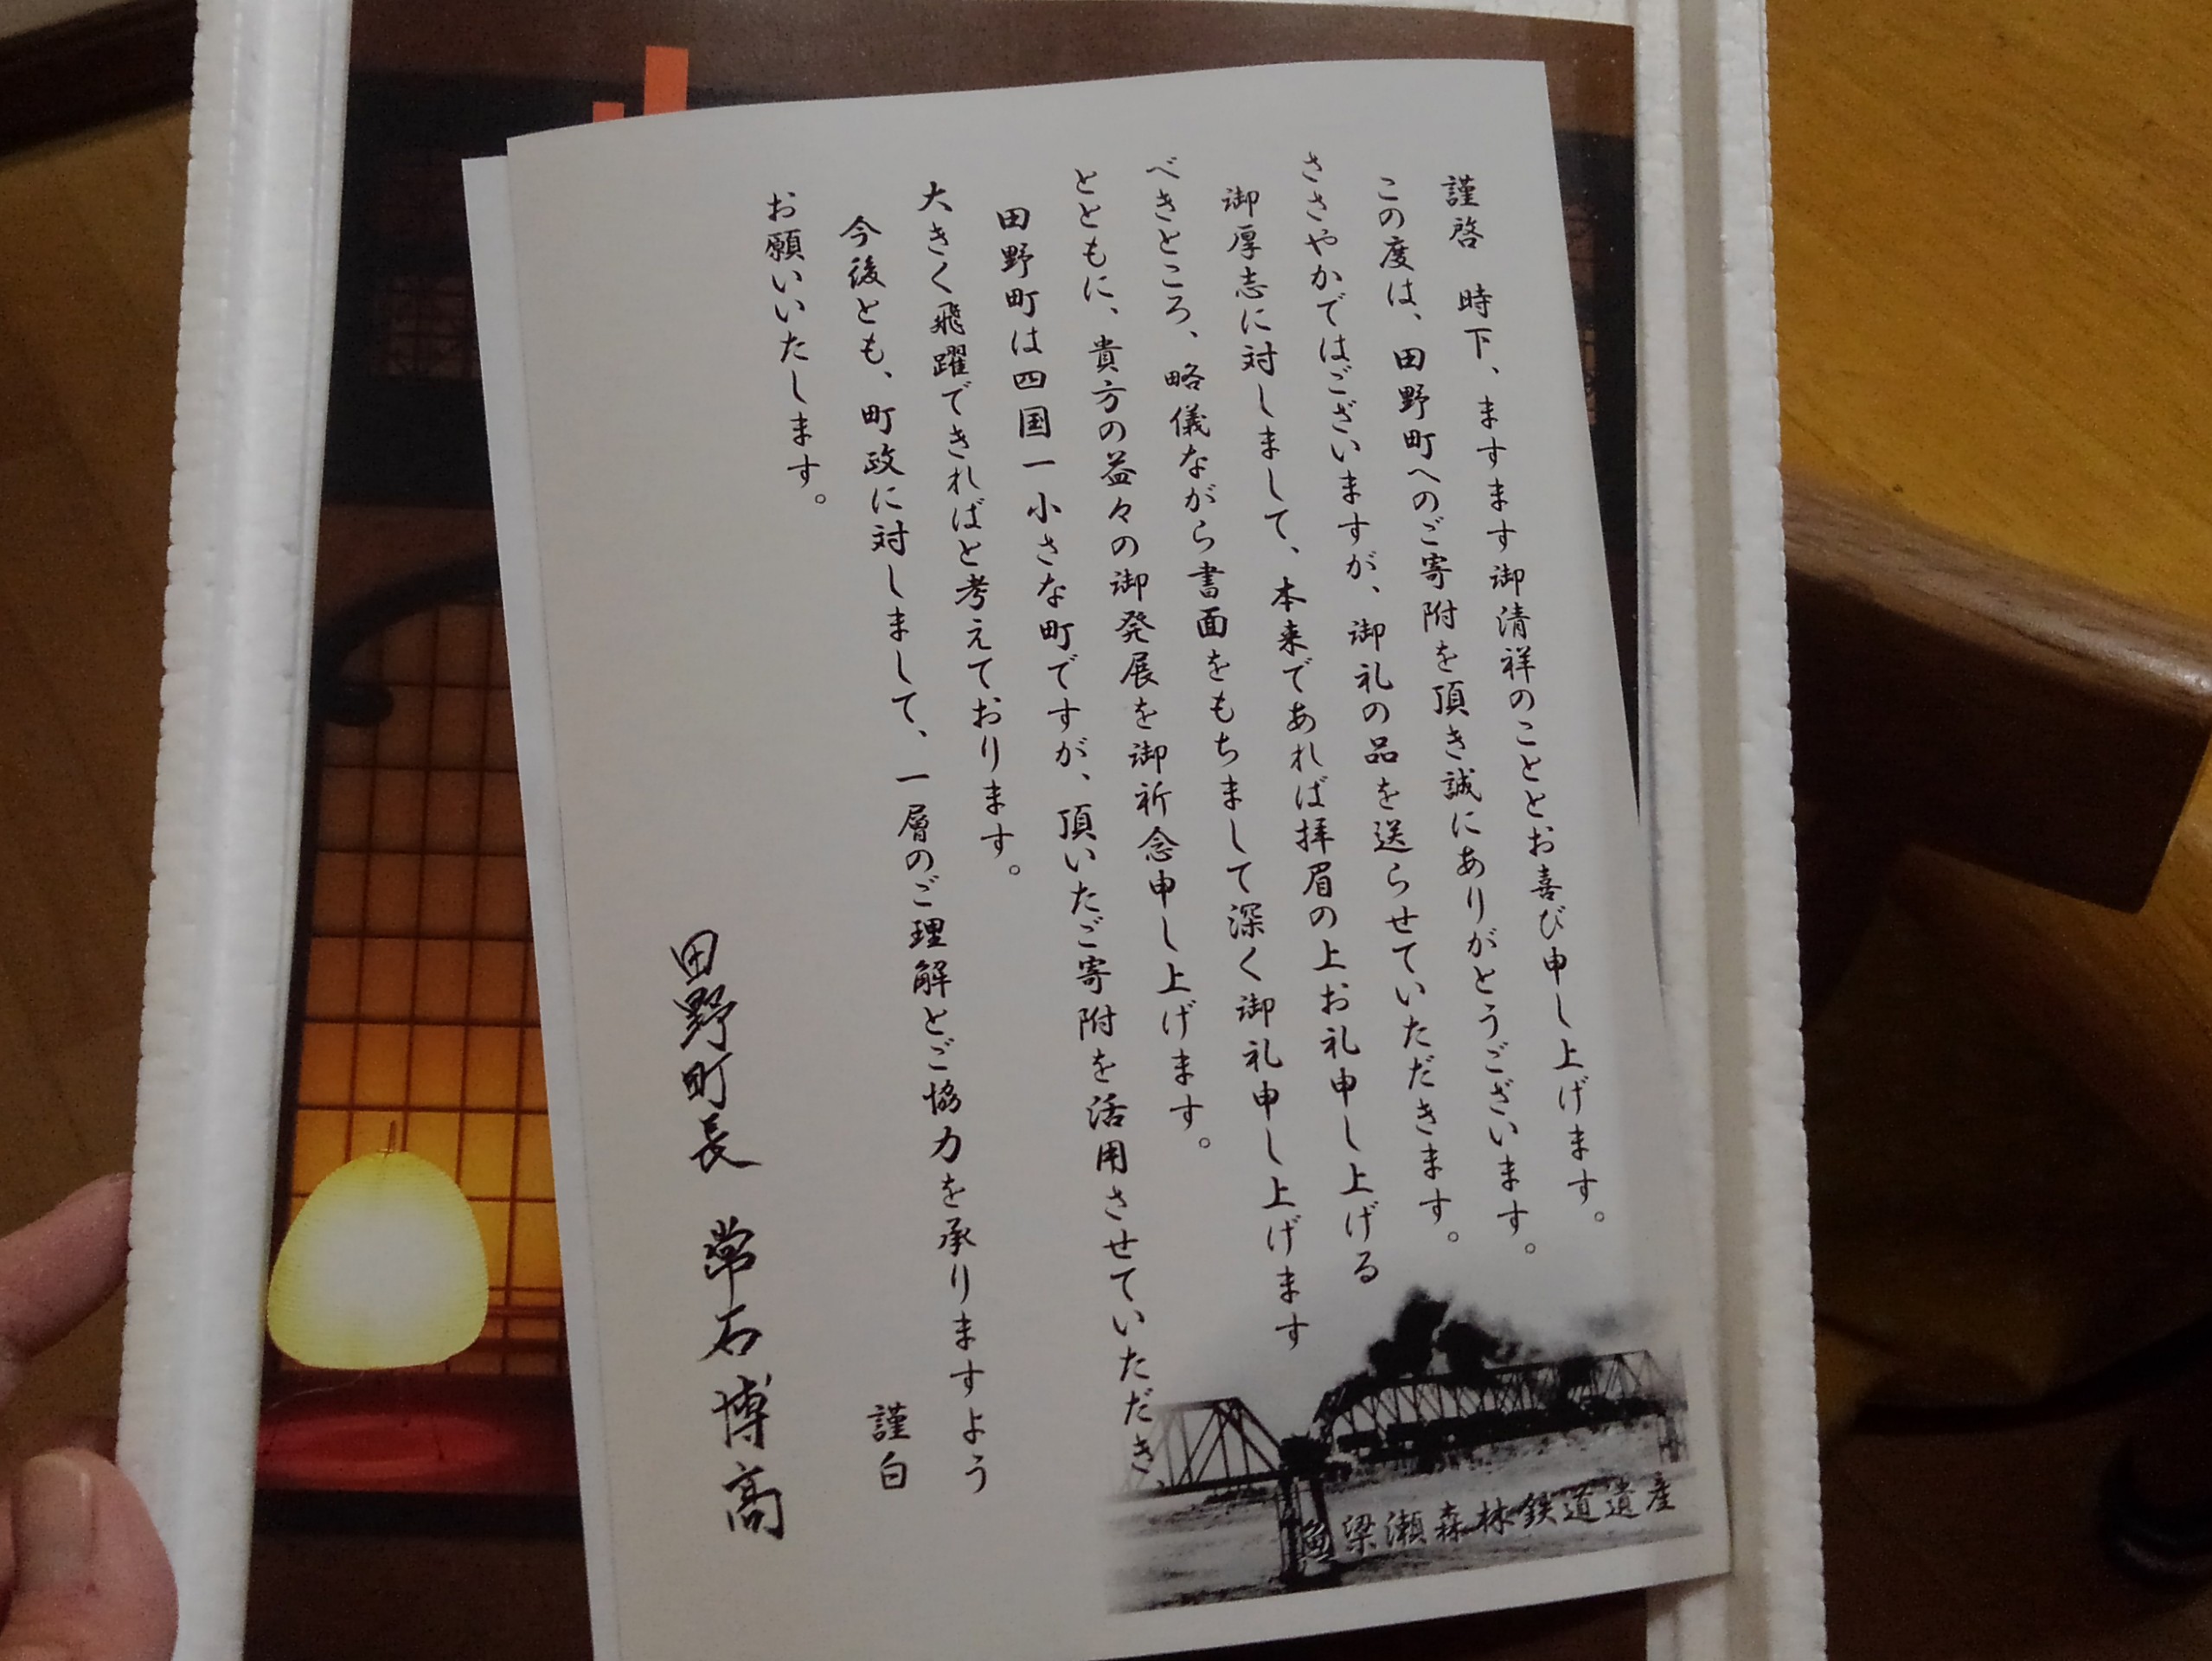 謹啓　時下、ますます御清祥のこととお喜び申し上げます。
この度は、田野町へのご寄附を頂き誠にありがとうございます。
ささやかではございますが、御礼の品を送らせていただきます。
御厚志に対しまして、本来であれば拝眉の上お礼申し上げる
べきところ、略儀ながら書面をもちまして深く御礼申し上げます
とともに、貴方の益々の御発展を御祈念申し上げます。
田野町は四国一小さな町ですが、頂いたご寄附を活用させていただき、
大きく飛躍できればと考えております。
今後とも、町政に対しまして、一層のご理解とご協力を承りますよう
お願いいたします。
謹白
田野町長　常石博高
魚梁瀬森林鉄道遺産